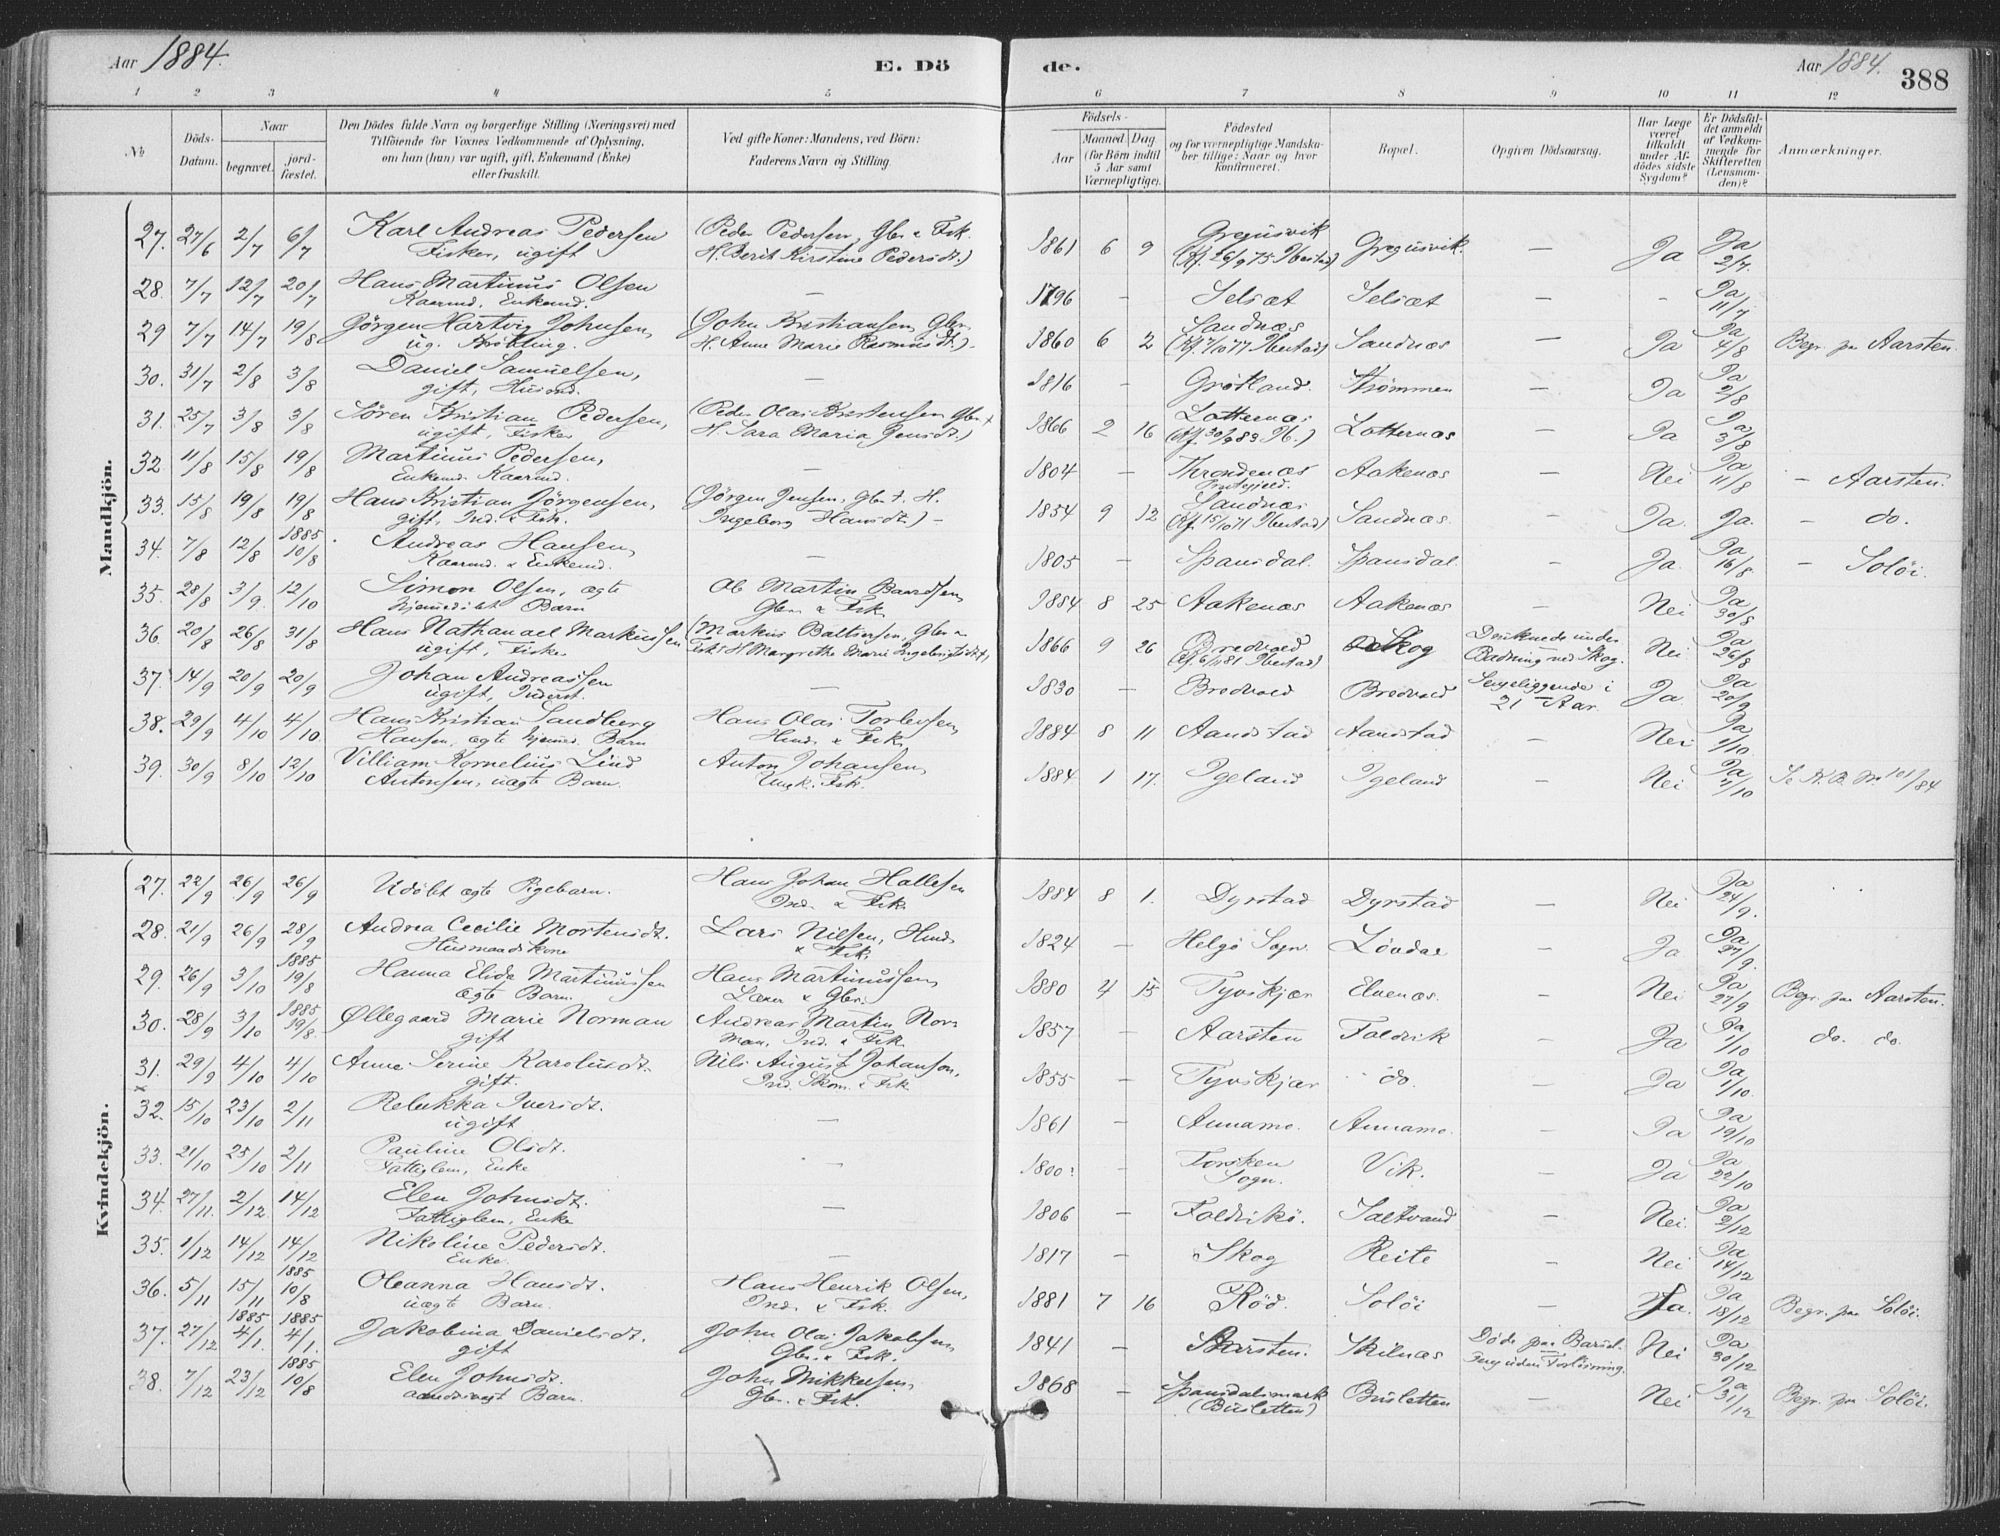 Aar 1884. E. Dö de. Aar 1884. 388
1 2 3 4 5 6 7 8 9 10 11 12
No
Döds-Datum.
Naar
begravet. jordfæstet.
Den Dödes fulde Navn og borgerlige Stilling (Næringsvei) med
Tilföiende for Voxnes Vedkommende af Oplysning,
om han (hun) var ugift, gift, Enkemand (Enke)
eller fraskilt.
Ved gifte Koner: Mandens, ved Börn:
Faderens Navn og Stilling.
Födsels-
Aar Maaned Dag
(for Börn indtil
5 Aar samt
Værnepligtige).
Födested
og for værnepligtige Mandskaber tillige: Naar og hvor
Konfirmeret.
Bopæl.
Opgiven Dödsaarsag.
Har Læge
været
tilkaldt
under Afdödes sidste
Sygdom?
Er Dödsfaldet anmeldt
af Vedkommende for
Skifteretten
(Lensmanden)?
Anmærkninger.
Mandkjön.
27. 27/6 2/7 6/7 Karl Andreas Pedersen (Peder Pedersen, Gbr. & Fsk. 1861 6 9 Gregusvik Gregusvik. — Ja Ja 2/7.
Fisker, ugift H. Berit Kirstine Pedersdt.) (Kf. 26/9 75 Ibestad)
28. 7/7 12/7 20/7 Hans Martinus Olsen — 1796 — Selsæt Selsæt — - Ja 11/7
Kaarmd. Enkemd.
29 7/7 14/7 19/8 Jörgen Hartvig Johnsen, (John Kristiansen, Gbr. 1860 6 2 Sandnæs Sandnæs — Ja Ja 4/8 Begr. paa Aarsten.
ug. H. Anne Marie Rasmusdt.) (Kf. 7/10 77 Ibestad)
30. 31/7 2/8 3/8 Daniel Samuelsen, — 1816 — Grötland. Strömmen — Ja Ja 2/8
gift, Husmd.
31. 25/7 3/8 3/8 Sören Kristian Pedersen, (Peder Olai Kristensen Gbr. & 1866 2 16 Lotternæs Lotternæs — Ja Ja 3/8
ugift, Fisker H. Sara Maria Jensdt.) (Kf. 30/9 83 Ib.)
32. 11/8 15/8 19/8 Martinus Pedersen, — 1804 — Throndenæs Aakenæs — Nei Ja 11/8 - Aarsten.
Enkemd. Kaarmd. Præstegjeld.
33. 15/8 19/8 19/8 Hans Kristian Jörgensen, (Jörgen Jensen, Gbr. & H. 1854 9 12 Sandnæs Sandnæs. — Ja. Ja. - do.
gift, Ind. & Fsk. Ingeborg Hansdt.) — (Kf. 15/10 71 Ibestad)
34. 7/8 12/8 1885 10/8 Andreas Hansen, — 1805 — Spansdal. Spansdal. — Ja. Ja 16/8 - Solöi.
Kaarmd. & Enkemd.
35. 28/8 3/9. 12/10 Simon Olsen, ægte Ole Martin Baardsen, 1884 8 25 Aakenæs Aakenæs — Nei Ja 30/8
hjemmedöbt Barn Gbr. & Fsk.
36. 20/8 26/8 31/8 Hans Nathanael Markussen (Markus Baltsersen, Gbr. & 1866 9 26 Bredvold Skog Druknede under Nei Ja 26/8
ugift, Fisker Fsk. H. Margrethe Marie Ingebrigtsdt.) Badning ved Skog.
37. 14/9 20/9 20/9 Johan Andreassen — 1830 — Bredvold Bredvold Sengeliggende i Ja. Ja 20/9
ugift, Inderst. 21 Aar.
38. 29/9 4/10 4/10. Hans Kristian Sandberg Hans Olai Torlevsen, 1884 8 11 Aandstad Aandstad — Nei Ja 1/10.
Hansen, ægte hjemmed. Barn Husmd. & Fsk.
39. 30/9 8/10 12/10 Villiam Kornelius Lind Anton Johansen, 1884. 1 17. Igeland Igeland — Nei Ja 2/10 Se A. B. No 101/84
Antonsen, uægte Barn. Ungk. Fsk.
Kvindekjön.
27. 22/9 26/9 26/9 Udöbt ægte Pigebarn. Hans Johan Hallesen 1884 8 1. Dyrstad Dyrstad — Nei Ja 24/9.
Ind. & Fsk.
28. 21/9 26/9 28/9 Andrea Cecilie Mortensdt. Lars Nilsen, Husmd. 1824 — Helgö Sogn. Lövdal — Ja Ja 27/9.
Husmandskone & Fsk.
29. 26/9 3/10 1885 19/8 Hanna Elida Martinussen Hans Martinussen, 1880 4 15 Tyvskjær Elvenæs. — Nei Ja 27/9 Begr. paa Aarsten.
ægte Barn. Lærer & Gbr.
30. 28/9 3/10 1885 19/8. Øllegaard Marie Norman Andreas Martin Nor- 1857 — Aarsten Foldvik — Ja Ja 1/10 do. do.
gift man, Ind. & Fsk.
31. 29/9 4/10 4/10 Anne Serine Karolusdt. Nils August Johanson, 1855 — Tyvskjær do. — Ja Ja 1/10.
gift. Ind. Skom. & Fsk.
32. 15/10 23/10 2/11 Rebekka Iversdt. — 1861 — Annamo. Annamo. — Ja Ja 19/10
ugift
33. 21/10 25/10 2/11 Pauline Olsdt. — 1800? — Torsken Vik. — Ja Ja 22/10
Fattiglem, Enke Sogn.
34. 27/11. 2/12 14/12 Elen Johnsdt. — 1806 — Foldvikö. Saltvand — Nei. Ja 2/12
Fattiglem, Enke
35. 1/12 14/12 14/12 Nikoline Pedersdt. — 1817 — Skog Reite — Nei Ja 14/12
Enke.
36. 5/11 15/11 1885 10/8 Oleanna Hansdt. Hans Henrik Olsen, 1881 7 16 Röd. Solöi — Ja. Ja 18/12 Begr. paa Solöi.
uægte Barn. Ind. & Fsk.
37. 27/12 1885 4/1. 1885 4/1. Jakobina Danielsdt. John Olai Jakobsen, 1841 — Aarsten. Skilnæs Döde paa Barsel- Nei Ja 30/12
gift Gbr. & Fsk. seng uden Forlösning.
38. 7/12 23/12 1885 10/8 Elen Johnsdt. John Mikkelsen, 1868 — Spansdalsmark Busletten — Nei Ja 31/12 Begr. paa Solöi.
aandsvagt Barn. Gbr. & Fsk. (Busletten)